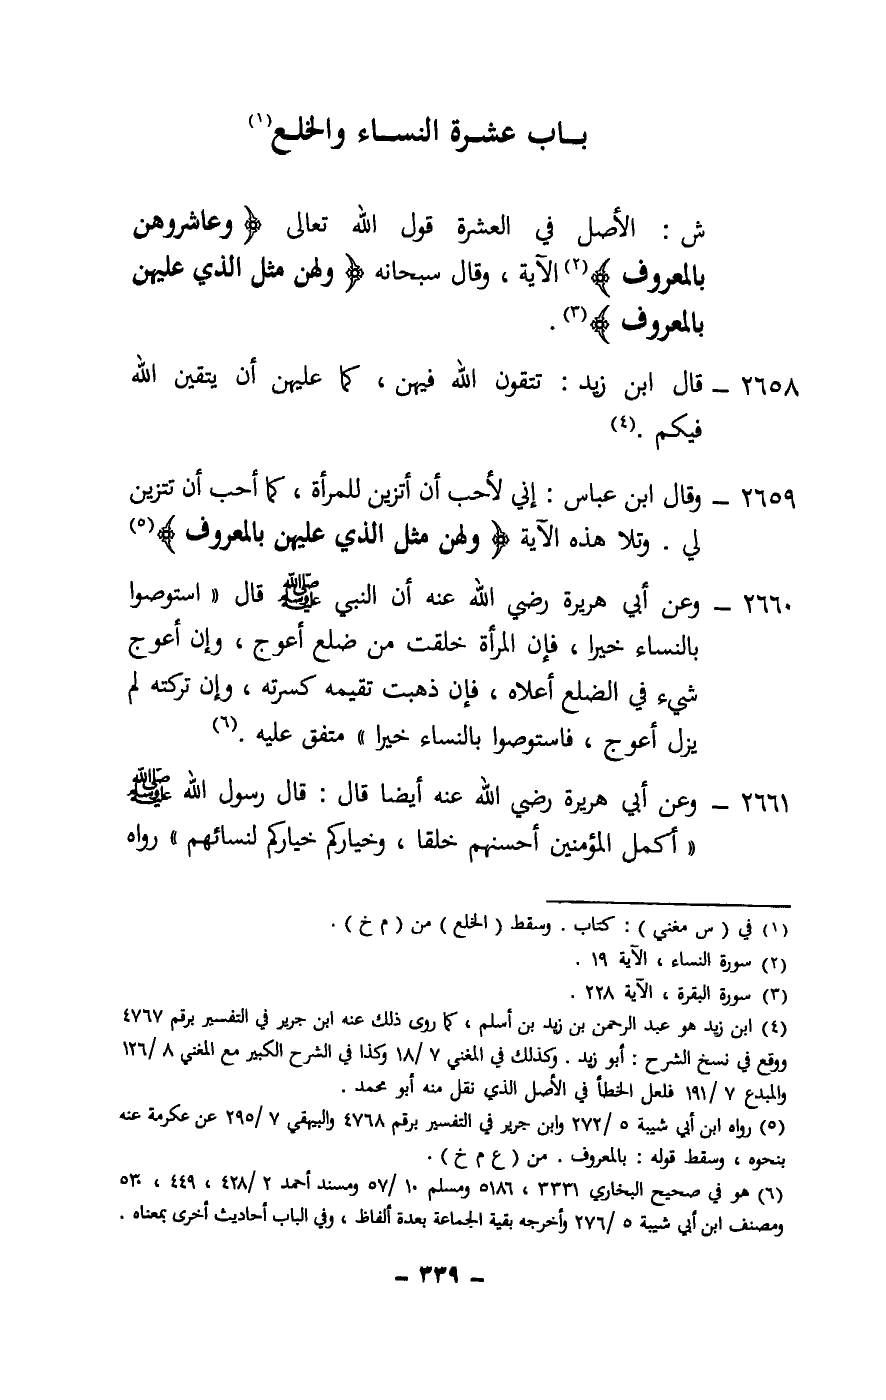 بـاب عشـرة النسـاء والخلـع(١)
ش : الأصل في العشرة قول الله تعالى ﴿ وعاشروهن
بالمعروف ﴾(٢) الآية ، وقال سبحانه ﴿ ولهن مثل الذي عليهن
بالمعروف ﴾(٣) .
٢٦٥٨ – قال ابن زيد : تتقون الله فيهن ، كما عليهن أن يتقين الله
فيكم .(٤)
٢٦٥٩ – وقال ابن عباس : إني لأحب أن أتزين للمرأة ، كما أحب أن تتزين
لي . وتلا هذه الآية ﴿ ولهن مثل الذي عليهن بالمعروف ﴾(٥)
٢٦٦٠ – وعن أبي هريرة رضي الله عنه أن النبي ﷺ قال « استوصوا
بالنساء خيرا ، فإن المرأة خلقت من ضلع أعوج ، وإن أعوج
شيء في الضلع أعلاه ، فإن ذهبت تقيمه كسرته ، وإن تركته لم
يزل أعوج ، فاستوصوا بالنساء خيرا » متفق عليه .(٦)
٢٦٦١ – وعن أبي هريرة رضي الله عنه أيضا قال : قال رسول الله ﷺ
« أكمل المؤمنين أحسنهم خلقا ، وخياركم خياركم لنسائهم » رواه
(١) في ( س مغني ) : كتاب . وسقط ( الخلع ) من ( م خ ) .
(٢) سورة النساء ، الآية ١٩ .
(٣) سورة البقرة ، الآية ٢٢٨ .
(٤) ابن زيد هو عبد الرحمن بن زيد بن أسلم ، كما روى ذلك عنه ابن جرير في التفسير برقم ٤٧٦٧
ووقع في نسخ الشرح : أبو زيد . وكذلك في المغني ٧ /١٨ وكذا في الشرح الكبير مع المغني ٨ /١٢٦
والمبدع ٧ /١٩١ فلعل الخطأ في الأصل الذي نقل منه أبو محمد .
(٥) رواه ابن أبي شيبة ٥ /٢٧٢ وابن جرير في التفسير برقم ٤٧٦٨ والبيهقي ٧ /٢٩٥ عن عكرمة عنه
بنحوه ، وسقط قوله : بالمعروف . من ( ع م خ ) .
(٦) هو في صحيح البخاري ٣٣٣١ ، ٥١٨٦ ومسلم ١٠ /٥٧ ومسند أحمد ٢ /٤٢٨ ، ٤٤٩ ، ٥٣٠
ومصنف ابن أبي شيبة ٥ /٢٧٦ وأخرجه بقية الجماعة بعدة ألفاظ ، وفي الباب أحاديث أخرى بمعناه .
– ٣٣٩ –